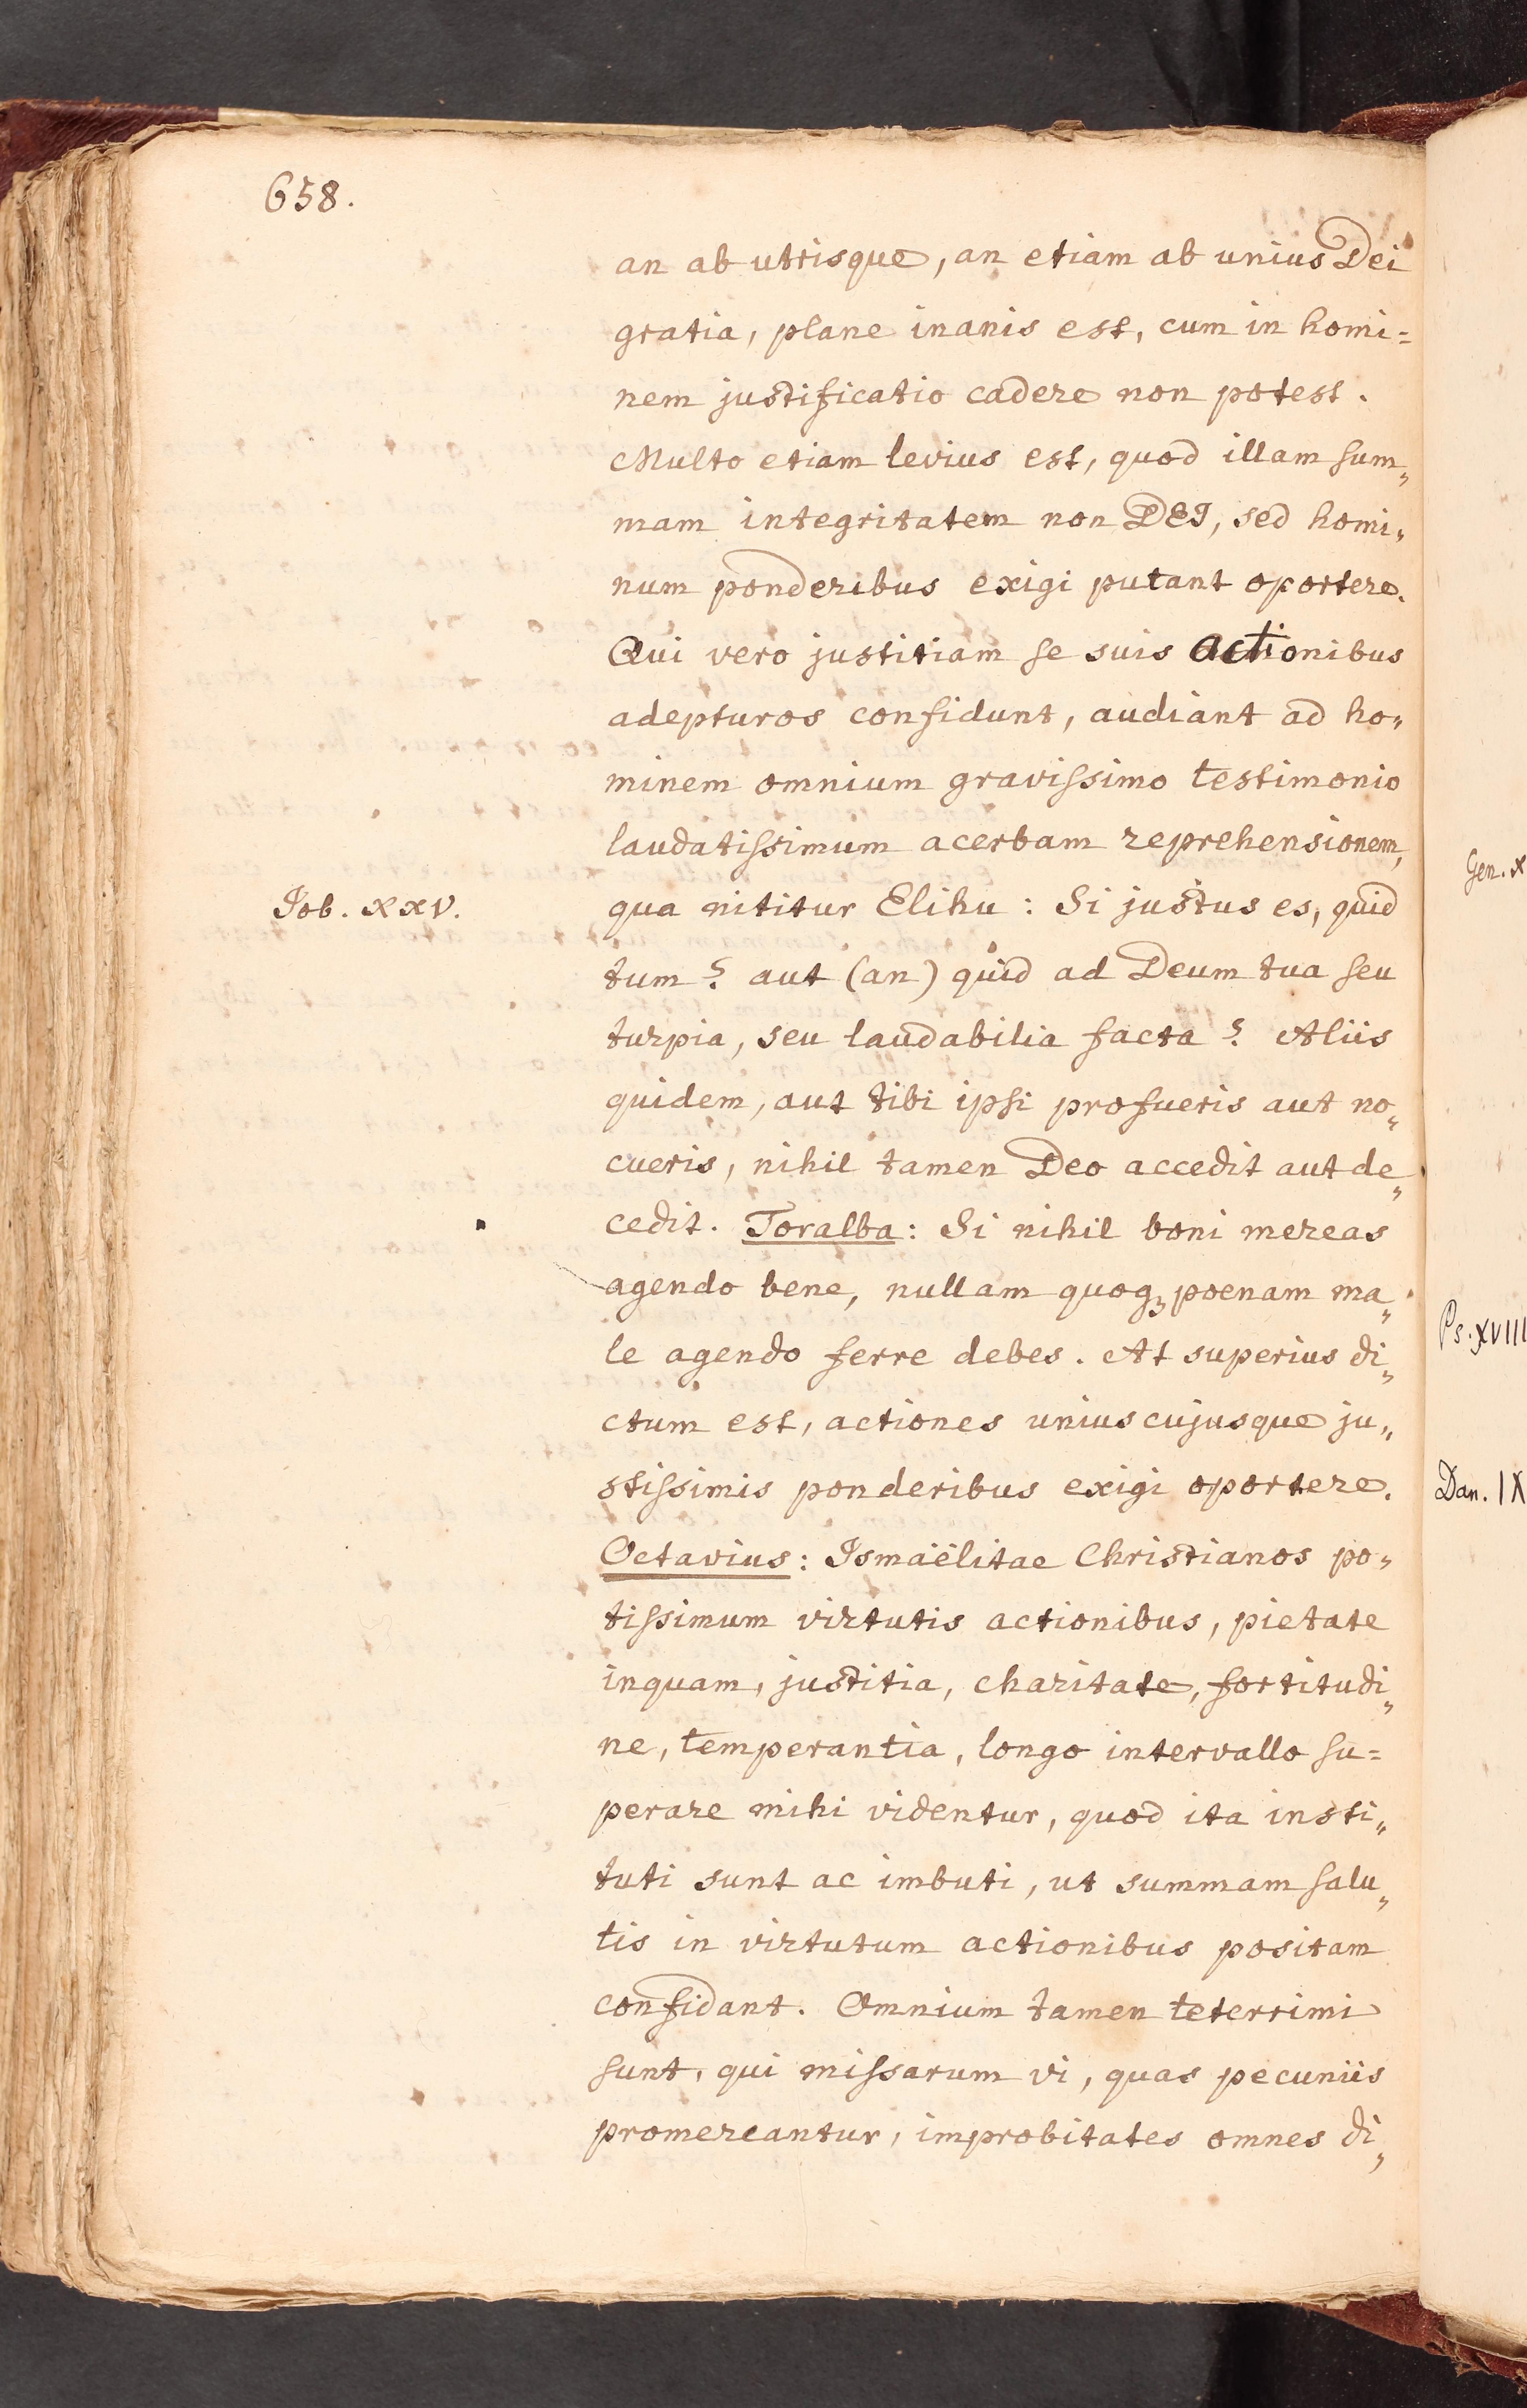 658.
an ab utrisque, an etiam ab unius Dei
gratia, plane inanis est, cum in homi=
nem justificatio cadere non potest.
Multo etiam levius est, quod illam sum„
mam integritatem non DEI, sed homi„
num ponderibus exigi putant oportere.
Qui vero justitiam se suis actionibus
adepturos confidunt, audiant ad ho„
minem omnium gravissimo testimonio
laudatissimum acerbam reprehensionem,
Iob. XXV.
qua nititur Elihu: Si justus es, quid
tum? aut (an) quid ad Deum tua seu
turpia, seu laudabilia facta? Aliis
quidem, aut tibi ipsi profueris aut no„
cueris, nihil tamen Deo accedit aut de„
cedit. Toralba: Si nihil boni mereas
agendo bene, nullam quoq₃ poenam ma„
le agendo ferre debes. At superius di„
ctum est, actiones uniuscujusque ju„
stissimis ponderibus exigi oportere.
Octavius: Ismaëlitae Christianos po„
tissimum virtutis actionibus, pietate
inquam, justitia, charitate, fortitudi„
ne, temperantia, longo intervallo su=
perare mihi videntur, quod ita insti„
tuti sunt ac imbuti, ut summam salu„
tis in virtutum actionibus positam
confidant. Omnium tamen teterrimi
sunt, qui missarum vi, quas pecuniis
promereantur, improbitates omnes di„
Gen. X
Ps. XVIII
Dan. IX